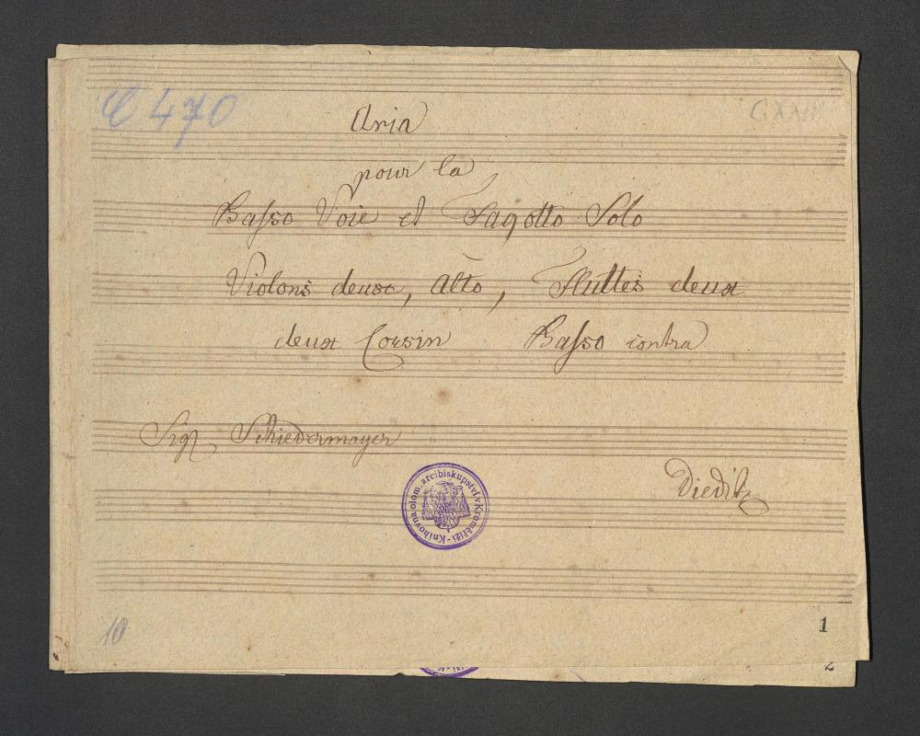 C 470
Aria
pour la
Basso Voie et Fagotto Solo
Violons deux, Alto, Fluttes deux
deux Corsin Basso contra
Sigr Schiedermayer
Knihovna olom. arcibiskupství v Kroměříži
10
1
2